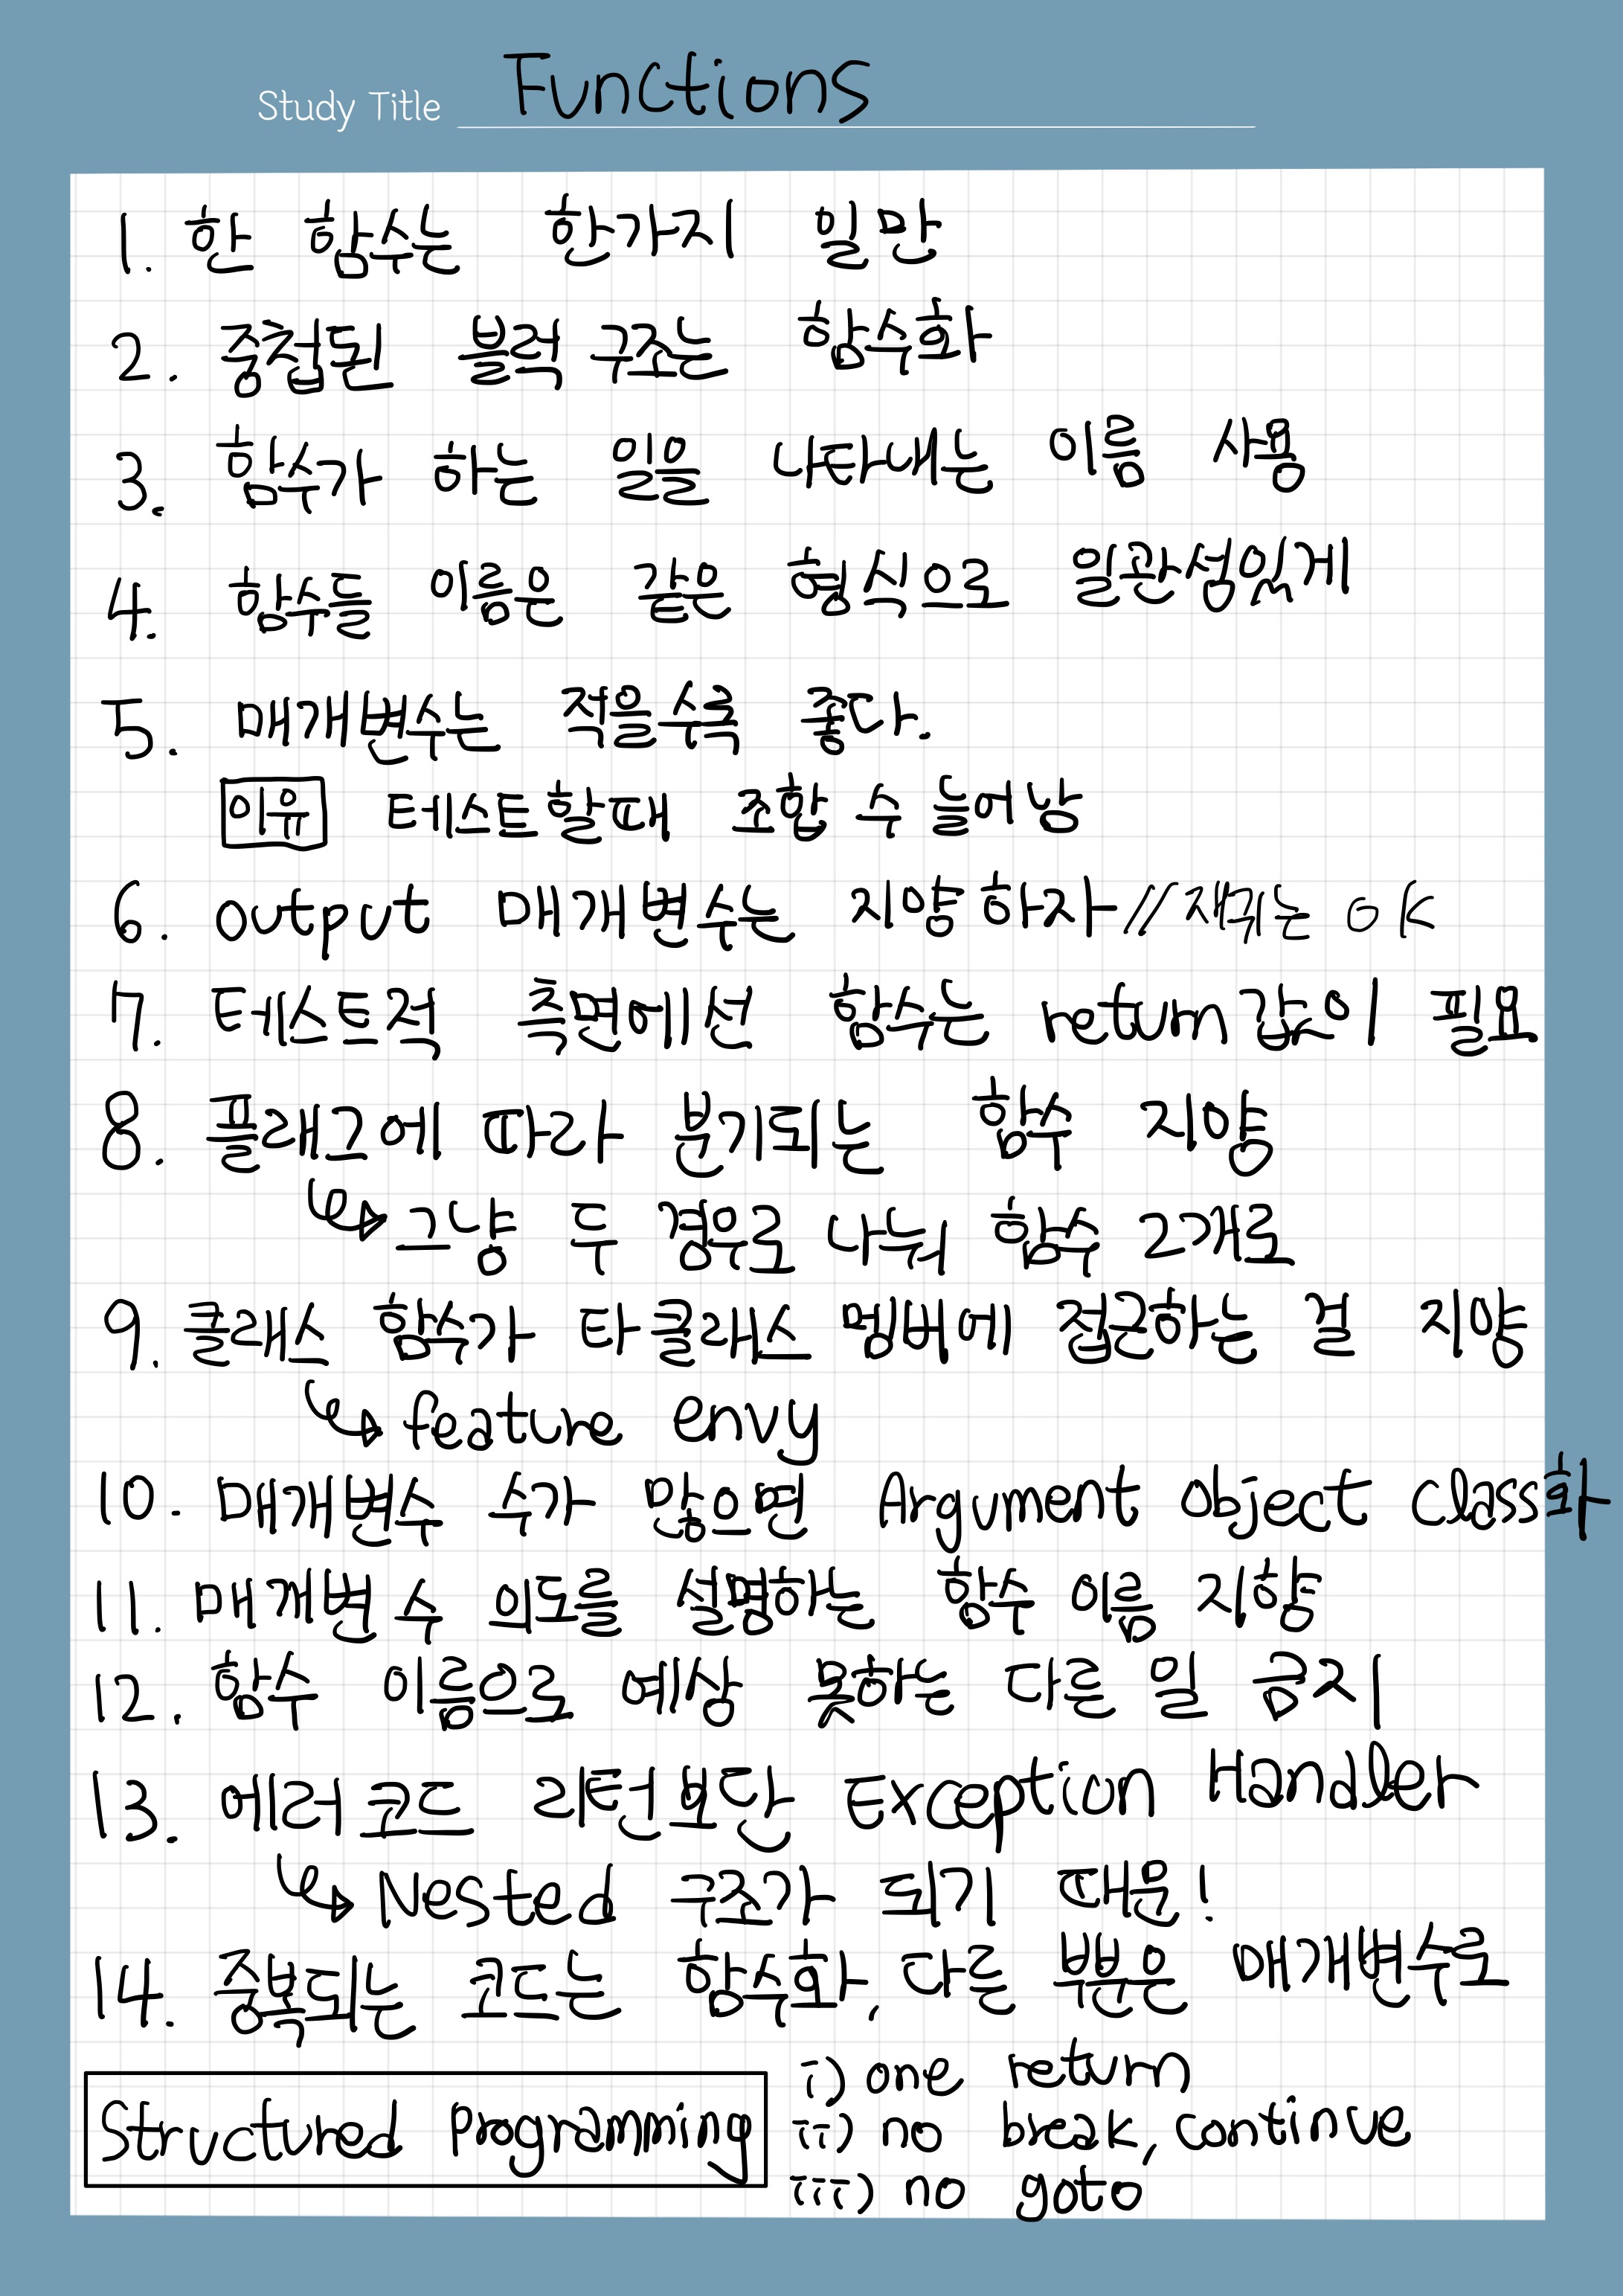 Study Title Functions
1. 한 함수는 한가지 일만
2. 중첩된 블럭 구조는 함수화
3. 함수가 하는 일을 나타내는 이름 사용
4. 함수들 이름은 같은 형식으로 일관성있게
5. 매개변수는 적을수록 좋다.
이유 테스트할때 조합 수 늘어남
6. output 매개변수는 지양하자 // 재귀는 OK
7. 테스트적 측면에선 함수는 return값이 필요
8. 플래그에 따라 분기되는 함수 지양
↳ 그냥 두 경우로 나눠 함수 2개로
9. 클래스 함수가 타클래스 멤버에 접근하는 걸 지양
↳ feature envy
10. 매개변수 수가 많으면 Argument Object Class화
11. 매개변수 의도를 설명하는 함수 이름 지향
12. 함수 이름으로 예상 못하는 다른 일 금지
13. 에러코드 리턴보단 Exception Handler
↳ Nested 구조가 되기 때문!
14. 중복되는 코드는 함수화, 다른 부분은 매개변수로
Structured Programming i) one return
ii) no break, continue
iii) no goto